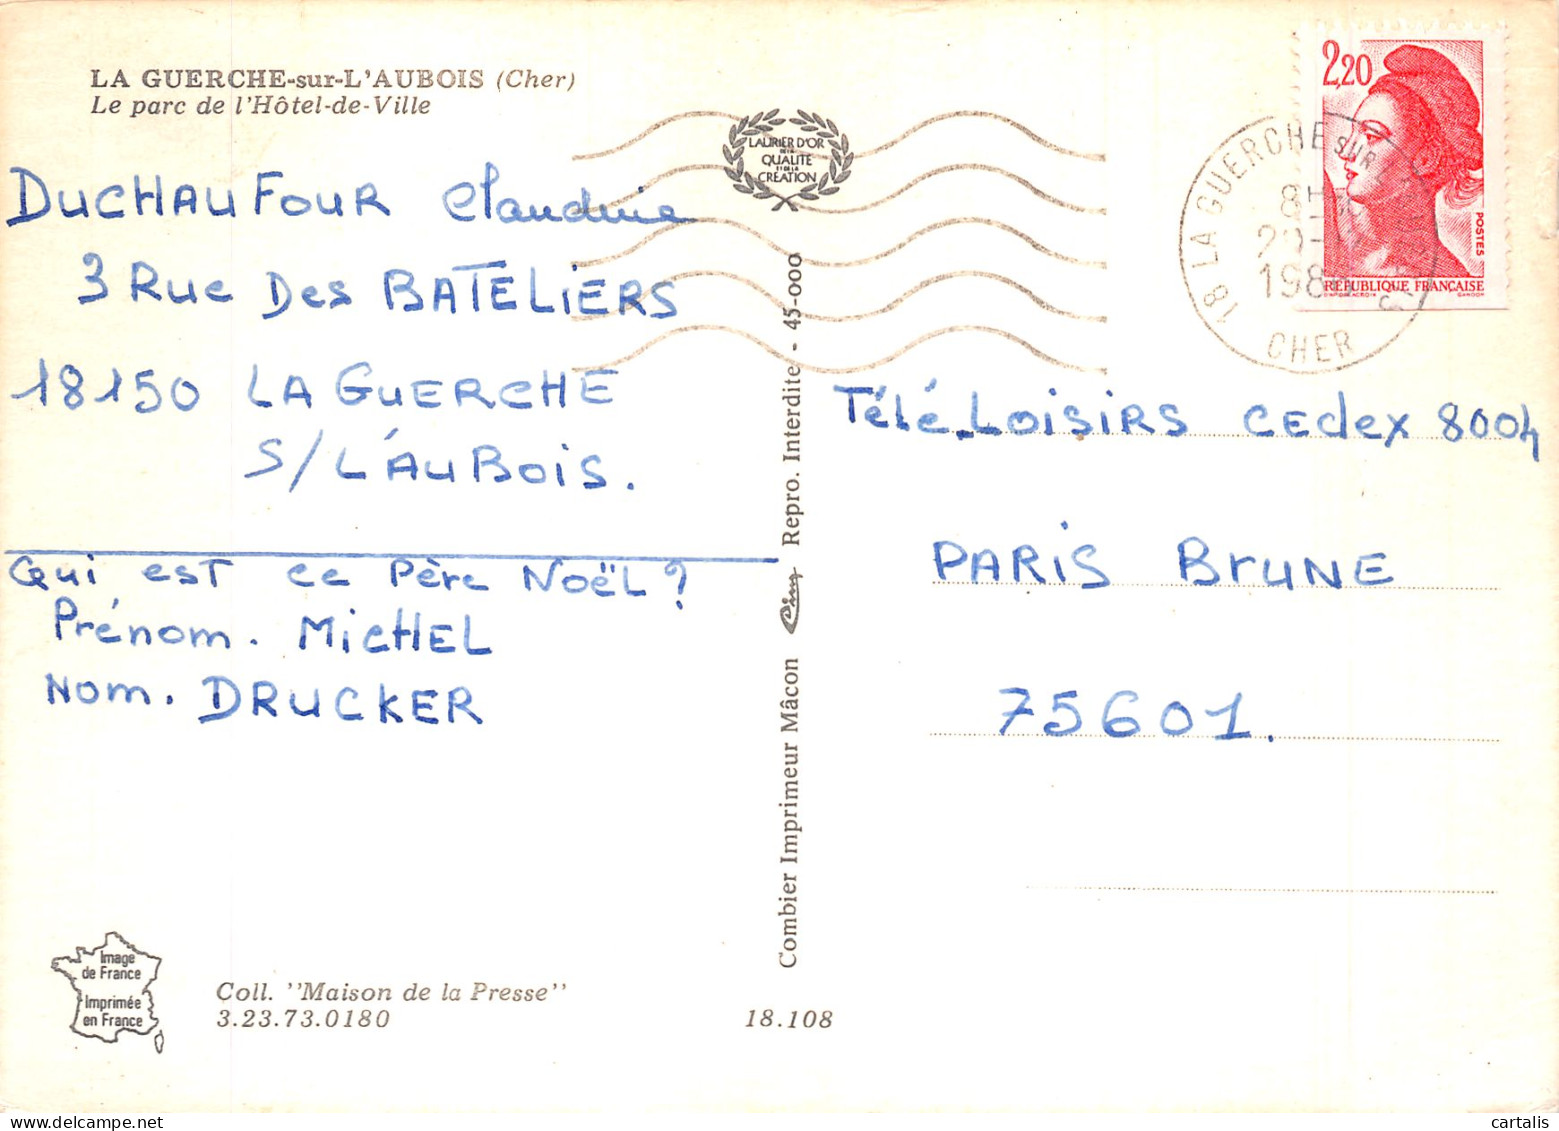 LA GUERCHE-sur-L'AUBOIS (Cher)
Le parc de l'Hôtel-de-Ville
DUCHAUFOUR Claudine
3 Rue Des BATELIERS
18150 LA GUERCHE
S/L'AUBOIS.
Qui EST ce Père NOËL?
Prénom. MICHEL
Nom. DRUCKER
Image
de France
Imprimée
en France
Coll. "Maison de la Presse"
3.23.73.0180
18.108
LAURIER D'OR
DE LA
QUALITE
ET DE LA
CREATION
Combier Imprimeur Mâcon
Repro. Interdite - 45-000
2,20
POSTES
RÉPUBLIQUE FRANÇAISE
GANDON
18 LA GUERCHE SUR
CHER
Télé.LOISIRS CEdex 8004
PARIS BRUNE
75601.
cartalis